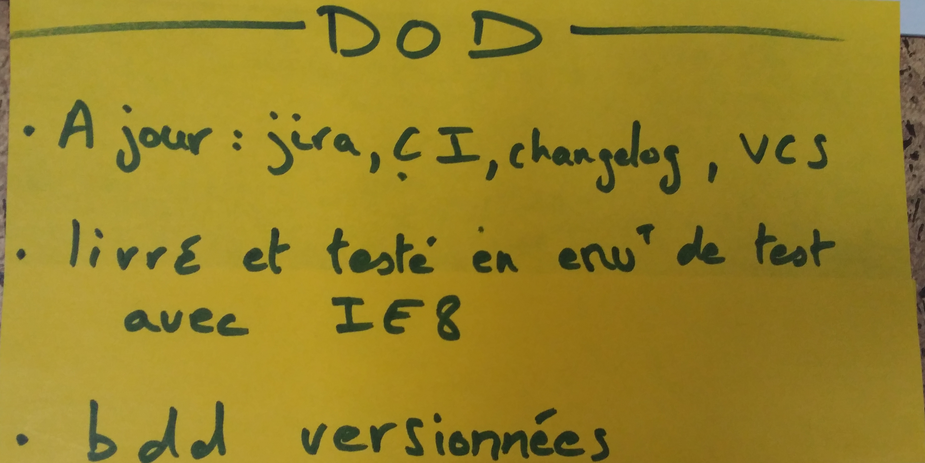 DOD
• A jour : jira, CI, changelog, vcs
• livré et testé en envT de test
avec IE8
• bdd versionnées